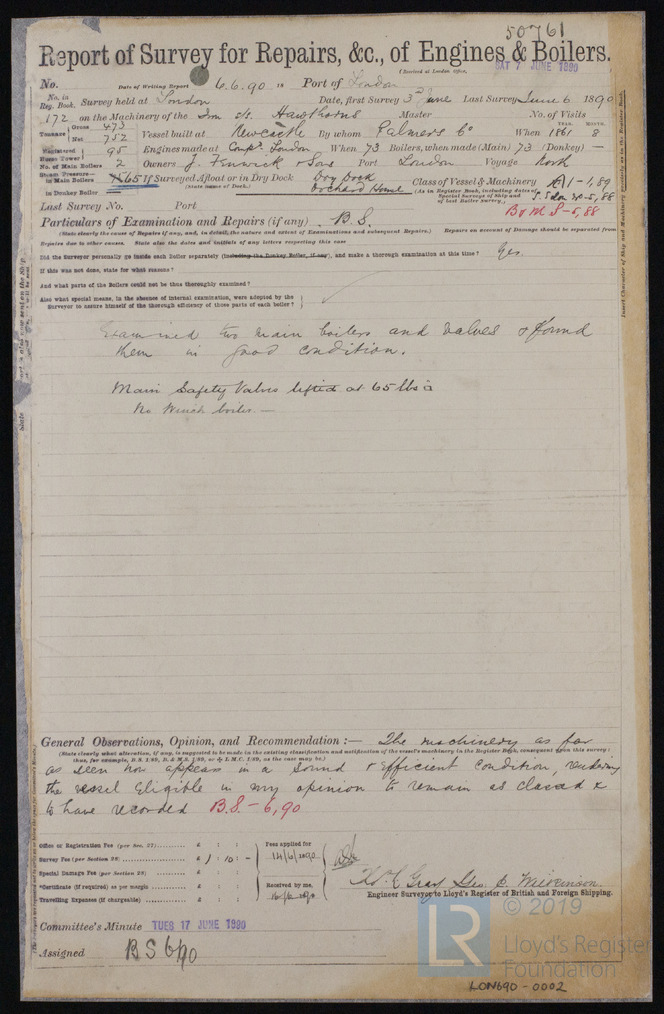 50761
Report of Survey for Repairs, &c., of Engines & Boilers.
(Received at London Office,
SAT 7 JUNE 1890
No. Date of Writing Report 6.6.90 18 Port of London
No. in Reg. Book. Survey held at London Date, first Survey 3rd June Last Survey June 6 1890
172 on the Machinery of the Iron s/s. Hawthorns Master No. of Visits
Tonnage { Gross 473 Net 752 Vessel built at Newcastle By whom Palmers Co When YEAR. 1861 MONTH. 8
Registered Horse Power 95 Engines made at London When 73 Boilers, when made (Main) 73 (Donkey) —
No. of Main Boilers 2 Owners J. Fenwick & Sons Port London Voyage
Steam Pressure— in Main Boilers 65 If Surveyed Afloat or in Dry Dock Dry Dock Class of Vessel & Machinery A1 - 1,89
(State name of Dock.) Orchard House (As in Register Book, including dates of Special Surveys of Ship and of last Boiler Survey.)
in Donkey Boiler —
Last Survey No. Port B&MS-5,88
Particulars of Examination and Repairs (if any) B.S.
(State clearly the cause of Repairs if any, and, in detail, the nature and extent of Examinations and subsequent Repairs.) Repairs on account of Damage should be separated from
Repairs due to other causes. State also the dates and initials of any letters respecting this case
Did the Surveyor personally go inside each Boiler separately (including the Donkey Boiler, if any), and make a thorough examination at this time? Yes.
If this was not done, state for what reasons?
And what parts of the Boilers could not be thus thoroughly examined?
Also what special means, in the absence of internal examination, were adopted by the
Surveyor to assure himself of the thorough efficiency of those parts of each boiler?
Examined two main boilers and valves & found
them in good condition.
Main Safety Valves lifted at 65 lbs
No Winch boiler. —
General Observations, Opinion, and Recommendation:— The machinery as far
(State clearly what alteration, if any, is suggested to be made in the existing classification and notification of the vessel's machinery in the Register Book, consequent upon this survey;
thus, for example, B.S. 1/89, B. & M.S. 1/89, or L.M.C. 1/89, as the case may be.)
as seen now appears in a sound & efficient condition, rendering
the vessel Eligible in my opinion to remain as classed &
to have recorded B.S-6,90
Office or Registration Fee (per Sec. 27) £ : : Fees applied for
Survey Fee (per Section 28) £ 1 : 10 : - 14/6/1890
Special Damage Fee (per Section 28) £ : :
*Certificate (if required) as per margin £ : : Received by me,
Travelling Expenses (if chargeable) £ : :
Thos. K. Gray Geo. C. Wilkinson
Engineer Surveyor to Lloyd's Register of British and Foreign Shipping.
Committee's Minute TUES 17 JUNE 1890
Assigned BS 6,90
LR
© 2019
Lloyd's Register
Foundation
LON690-0002